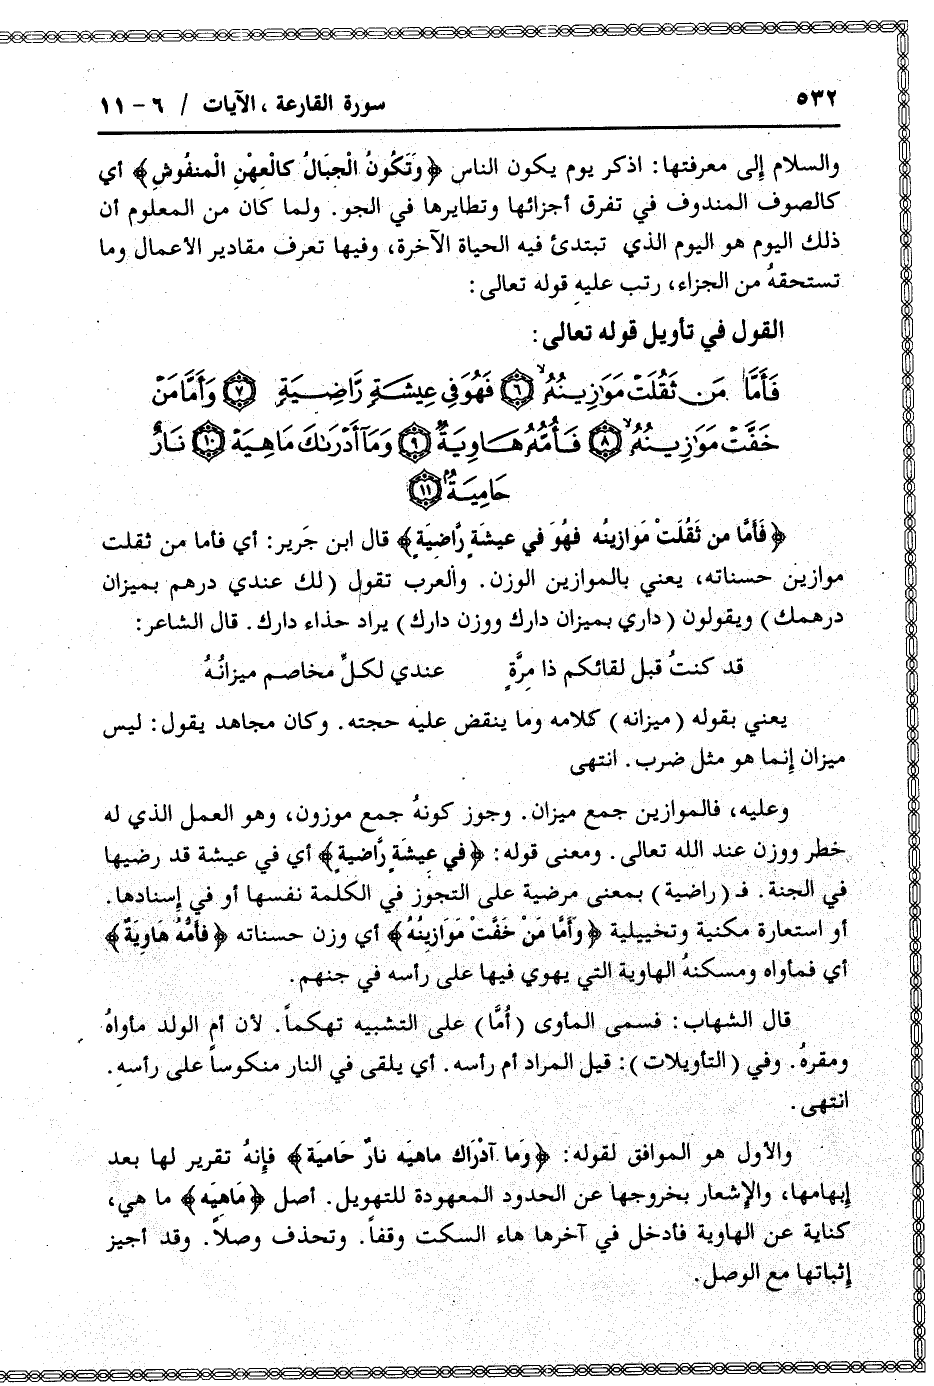 ٥٣٢ سورة القارعة ، الآيات / ٦ - ١١
والسلام إلى معرفتها: اذكر يوم يكون الناس ﴿وَتَكُونُ الْجِبَالُ كَالْعِهْنِ الْمَنفُوشِ﴾ أي
كالصوف المندوف في تفرق أجزائها وتطايرها في الجو. ولما كان من المعلوم أن
ذلك اليوم هو اليوم الذي تبتدئ فيه الحياة الآخرة، وفيها تعرف مقادير الأعمال وما
تستحقهُ من الجزاء، رتب عليه قوله تعالى:
القول في تأويل قوله تعالى:
فَأَمَّا مَن ثَقُلَتْ مَوَازِينُهُۥ ۙ ٦ فَهُوَ فِي عِيشَةٍ رَّاضِيَةٍ ٧ وَأَمَّا مَنْ
خَفَّتْ مَوَازِينُهُۥ ۙ ٨ فَأُمُّهُۥ هَاوِيَةٌ ٩ وَمَآ أَدْرَىٰكَ مَا هِيَهْ ١٠ نَارٌ
حَامِيَةٌ ١١
﴿فَأَمَّا من ثَقُلَتْ مَوازينُه فهُوَ في عيشَة رَّاضيَة﴾ قال ابن جَرير: أي فأما من ثقلت
موازين حسناته، يعني بالموازين الوزن. والعرب تقول (لك عندي درهم بميزان
درهمك) ويقولون (داري بميزان دارك ووزن دارك) يراد حذاء دارك. قال الشاعر:
قد كنتُ قبل لقائكم ذا مِرَّةٍ عندي لكلِّ مخاصم ميزانُهُ
يعني بقوله (ميزانه) كلامه وما ينقض عليه حجته. وكان مجاهد يقول: ليس
ميزان إنما هو مثل ضرب. انتهى
وعليه، فالموازين جمع ميزان. وجوز كونهُ جمع موزون، وهو العمل الذي له
خطر ووزن عند الله تعالى. ومعنى قوله: ﴿في عيشَة رَّاضية﴾ أي في عيشة قد رضيها
في الجنة. فـ (راضية) بمعنى مرضية على التجوّز في الكلمة نفسها أو في إسنادها.
أو استعارة مكنية وتخييلية ﴿وَأَمَّا مَنْ خَفَّتْ مَوَازِينُهُ﴾ أي وزن حسناته ﴿فأمُّهُ هَاوِيَةٌ﴾
أي فمأواه ومسكنهُ الهاوية التي يهوي فيها على رأسه في جنهم.
قال الشهاب: فسمى المأوى (أُمًّا) على التشبيه تهكماً. لأن أم الولد مأواهُ
ومقرهُ. وفي (التأويلات): قيل المراد أم رأسه. أي يلقى في النار منكوساً على رأسه.
انتهى.
والأول هو الموافق لقوله: ﴿وَما أدْرَاك ماهيَه نارٌ حَامية﴾ فإنهُ تقرير لها بعد
إبهامها، والإشعار بخروجها عن الحدود المعهودة للتهويل. أصل ﴿مَاهيَه﴾ ما هي،
كناية عن الهاوية فأدخل في آخرها هاء السكت وقفاً. وتحذف وصلاً. وقد أجيز
إثباتها مع الوصل.